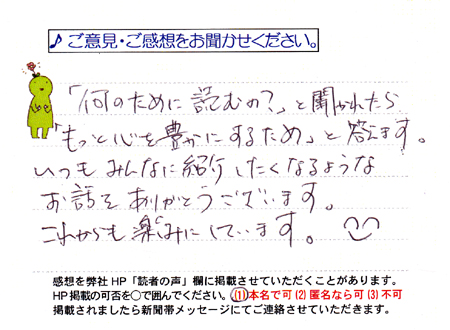 ♪ご意見・ご感想をお聞かせください。
「何のために読むの?」と聞かれたら
「もっと心を豊かにするため」と答えます。
いつもみんなに紹介したくなるような
お話をありがとうございます。
これからも楽しみにしています。
感想を弊社HP「読者の声」欄に掲載させていただくことがあります。
HP掲載の可否を○で囲んでください。(1)本名で可(2)匿名なら可(3)不可
掲載されましたら新聞帯メッセージにてご連絡させていただきます。